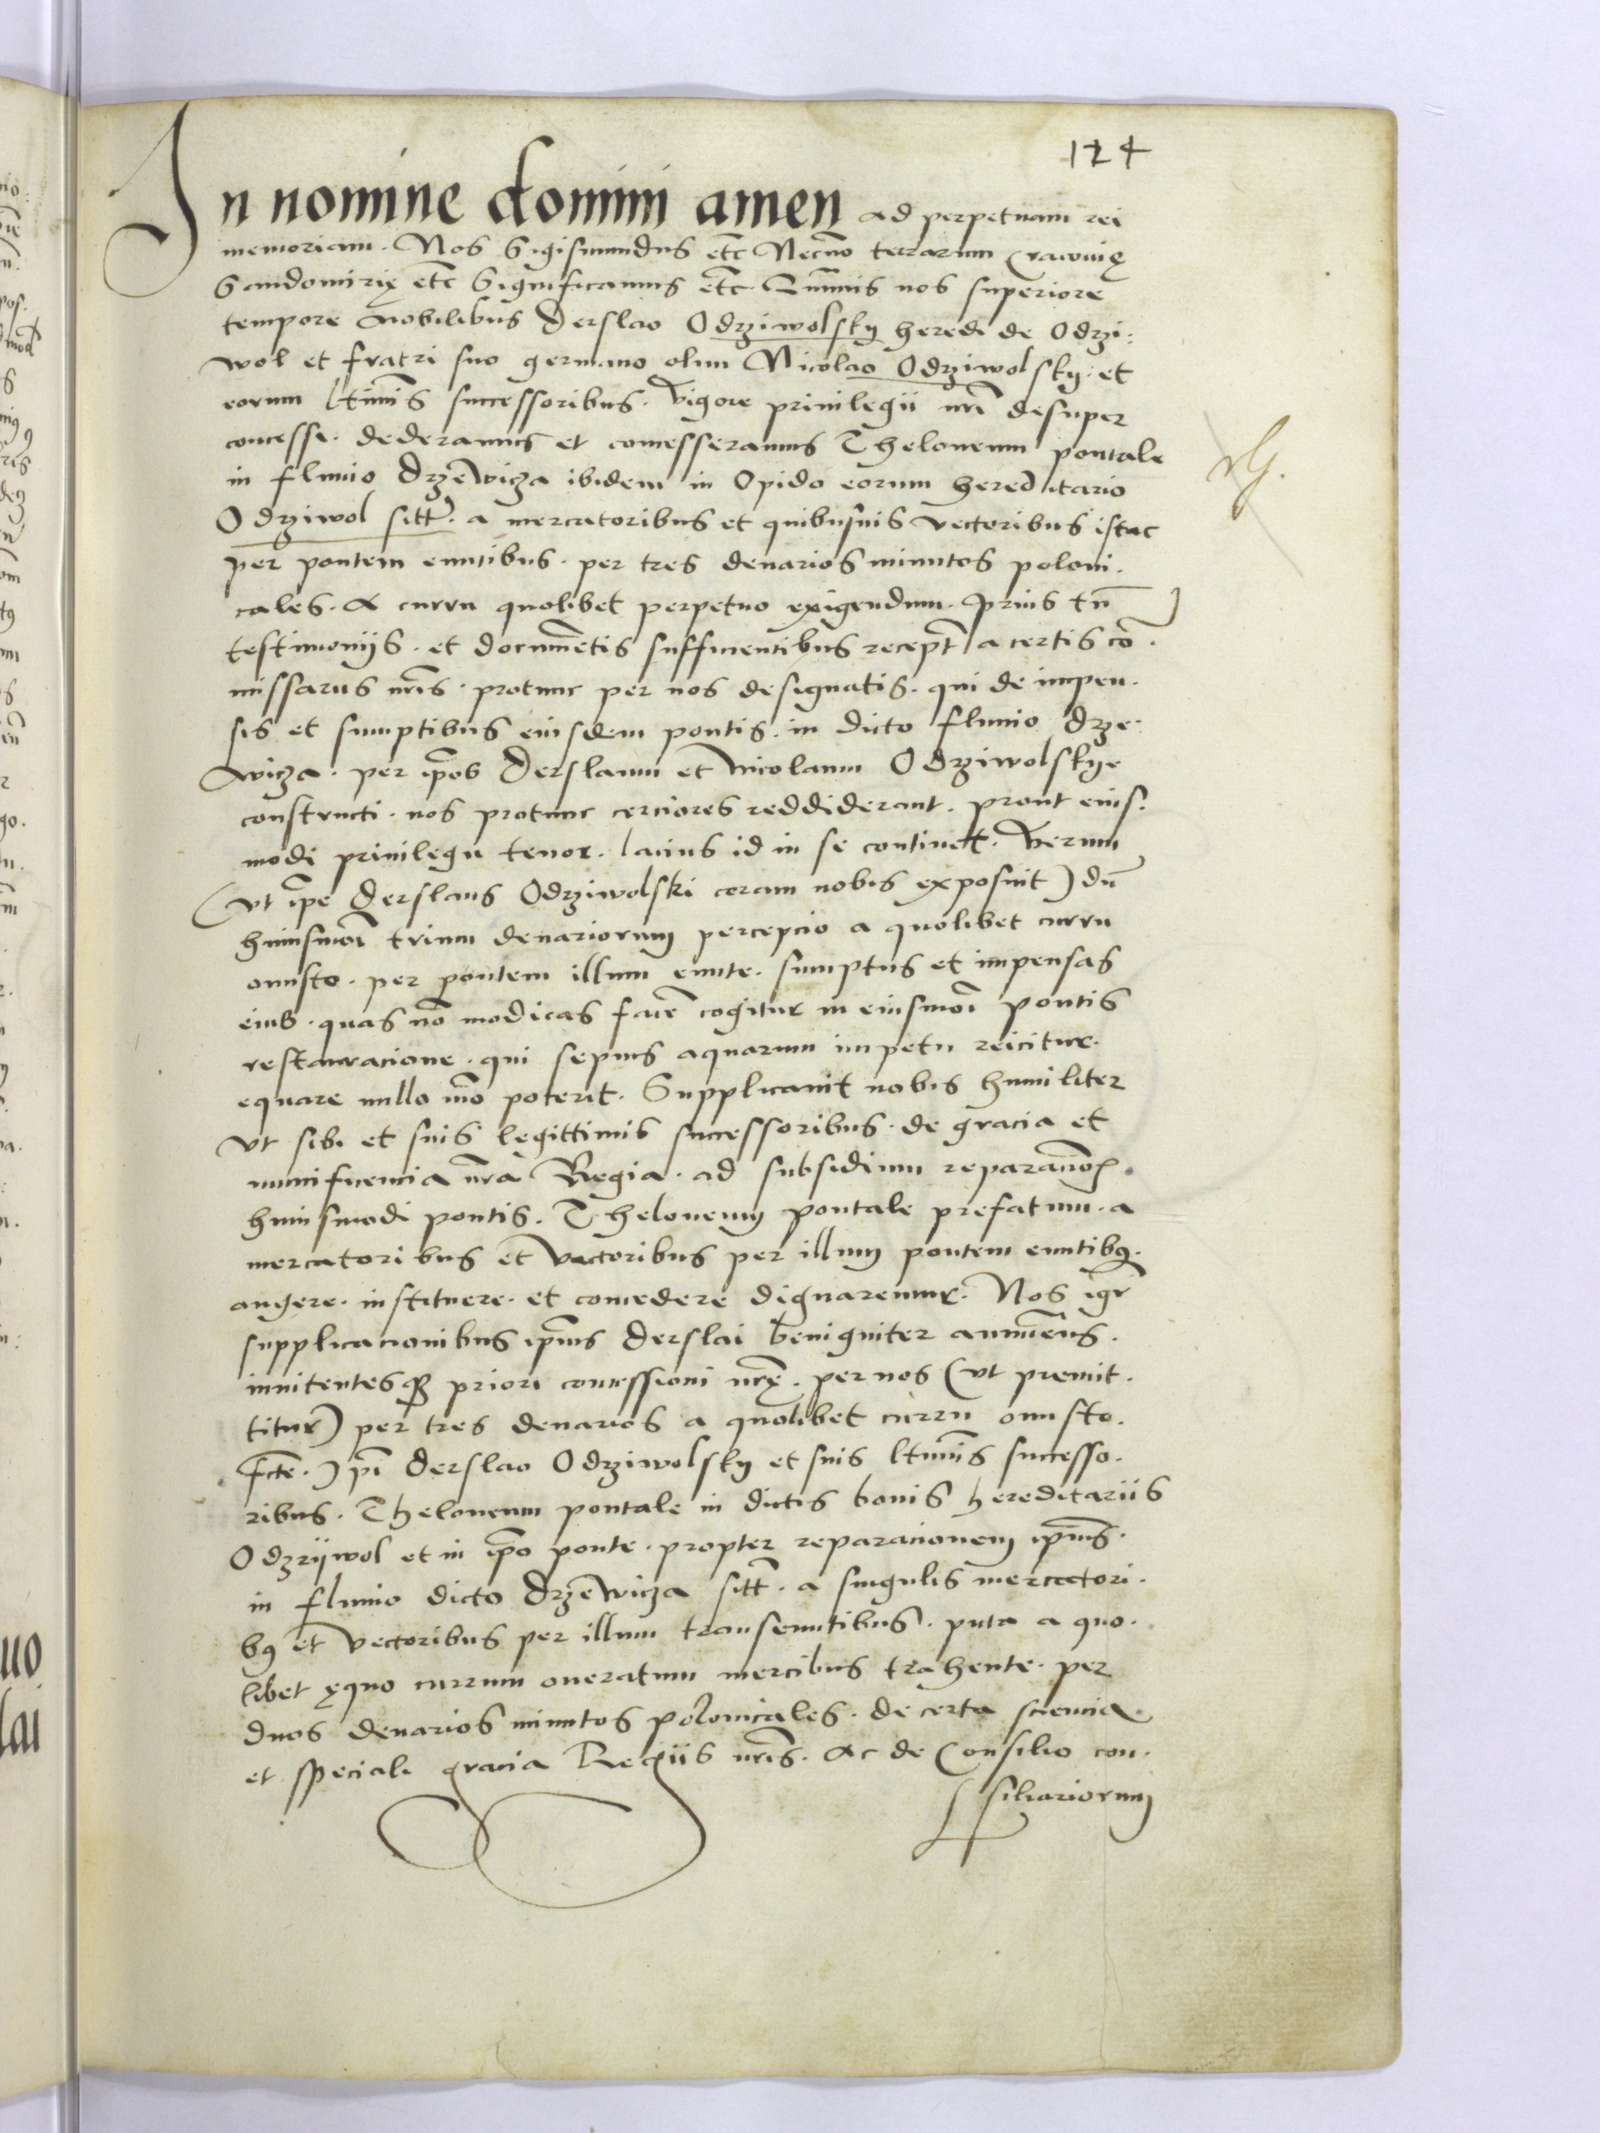 124
In nomine domini amen ad perpetuam rei
memoriam. Nos Sigismundus etc Necno terrarum Cracouię
Sandomirię etc Significamus etc. Qummis nos superiore
tempore nobilibus Derslao Odrziwolsky heredi de Odrzi:
wol et fratri suo germano olim Nicolao Odrziwolsky. et
eorum ltimis successoribus. vigore priuilegii nri desuper
concessi. dederamus et concesseramus Theloneum pontale
in fluuio Drzewicza ibidem in Opido eorum hereditario
Odrziwol sitt. a mercatoribus et quibusuis vectoribus istac
per pontem euntibus. per tres denarios minutos poloni.
cales. A curru quolibet perpetuo exigendum. Prius tn
testimoniis. et documetis sufficientibus recept a certis co.
missariis nris. protunc per nos designatis. qui de impen.
sis et sumptibus eiusdem pontis. in dicto fluuio Drze.
wicza. per ipos Derslaum et Nicolaum Odrziwolskye
constructi. nos protunc cerciores reddiderant. prout eius.
modi priuilegii tenor. lacius id in se continet. Verum
(vt ipe Derslaus Odrziwolski coram nobis exposuit) du
huiusmoi trium denariorum percepcio a quolibet curru
onusto. per pontem illum eunte. sumptus et impensas
eius. quas no modicas facere cogitur in eiusmoi pontis
restauracione. qui sepius aquarum impetu reicitur.
equare nullo mo poterit. Supplicauit nobis humiliter
vt sibi et suis legittimis successoribus. de gracia et
munificencia nra Regia. ad subsidium reparacionis
huiusmodi pontis. Theloneum pontale prefatum. a
mercatoribus et vectoribus per illum pontem euntibus.
augere. instituere. et concedere dignaremur. Nos igr
supplicacionibus ipius Derslai benigniter annuens.
innitentesque priori concessioni nrę. per nos (vt premit.
titur) per tres denarios a quolibet curru onusto.
fcte.) ipi Derslao Odrziwolsky et suis ltimis successo.
ribus. Theloneum pontale in dictis bonis hereditariis
Odrziwol et in ipo ponte. propter reparacionem ipius.
in fluuio dicto Drzewicza sitt. a singulis mercatori.
bus et vectoribus per illum transeuntibus. puta a quo.
libet ęquo currum oneratum mercibus trahente. per
duos denarios minutos polonicales. de certa sciencia
et speciali gracia Regiis nris. Ac de Consilio con.
siliariorum